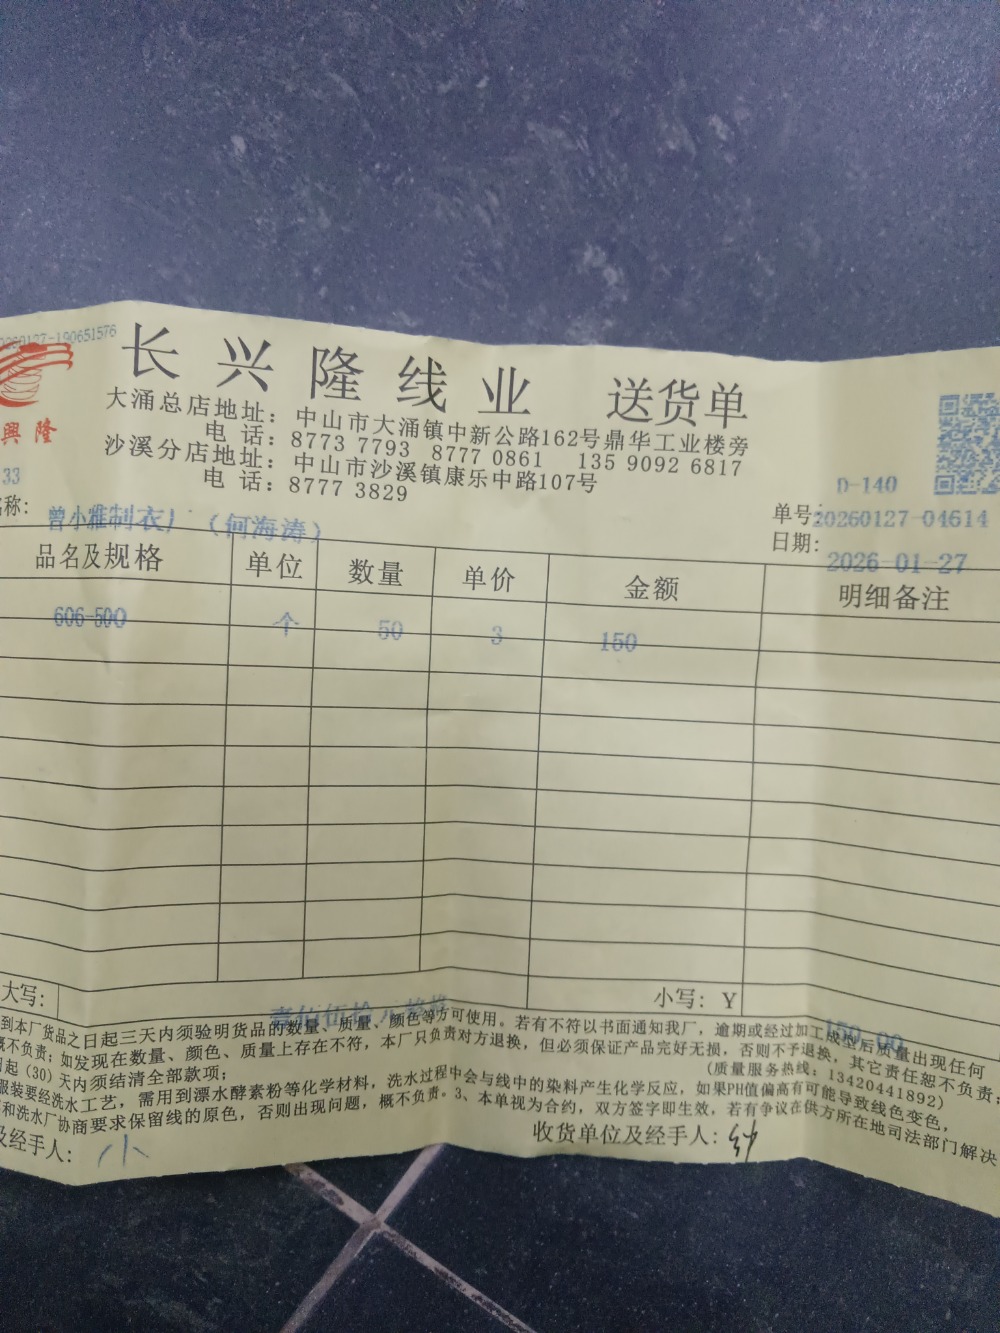 20260127-190651576
长兴隆线业 送货单
興隆
大涌总店地址：中山市大涌镇中新公路162号鼎华工业楼旁
电 话：8773 7793 8777 0861 135 9092 6817
沙溪分店地址：中山市沙溪镇康乐中路107号
电 话：8777 3829
33
D-140
称： 曾小雅制衣厂（何海涛）
单号：20260127-04614
日期：2026-01-27
品名及规格 单位 数量 单价 金额 明细备注
606-500 个 50 3 150
大写： 壹佰伍拾元整 小写：Y 150.00
到本厂货品之日起三天内须验明货品的数量、质量、颜色等方可使用。若有不符以书面通知我厂，逾期或经过加工成型后质量出现任何
概不负责；如发现在数量、颜色、质量上存在不符，本厂只负责对方退换，但必须保证产品完好无损，否则不予退换，其它责任恕不负责；
起（30）天内须结清全部款项； （质量服务热线：13420441892）
服装要经洗水工艺，需用到漂水酵素粉等化学材料，洗水过程中会与线中的染料产生化学反应，如果PH值偏高有可能导致线色变色，
和洗水厂协商要求保留线的原色，否则出现问题，概不负责。3、本单视为合约，双方签字即生效，若有争议在供方所在地司法部门解决
及经手人： 小 收货单位及经手人：